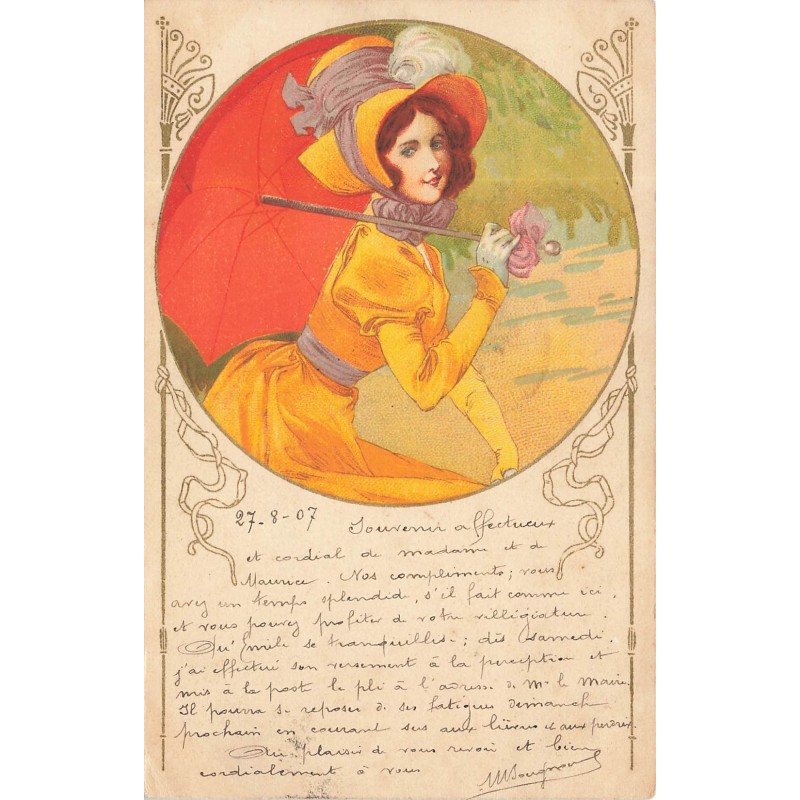 27-8-07 Souvenir affectueux
et cordial de madame et de
Maurice. Nos compliments; vous
avez un temps splendide, s'il fait comme ici,
et vous pouvez profiter de votre villégiature.
Qu'Emile se tranquillise; dès samedi,
j'ai effectué son versement à la perception et
mis à la post le pli à l'adresse de Mr le Maire.
Il pourra se reposer de ses fatigues dimanche
prochain en courant sus aux lièvres et aux perdrix.
Au plaisir de vous revoir et bien
cordialement à vous